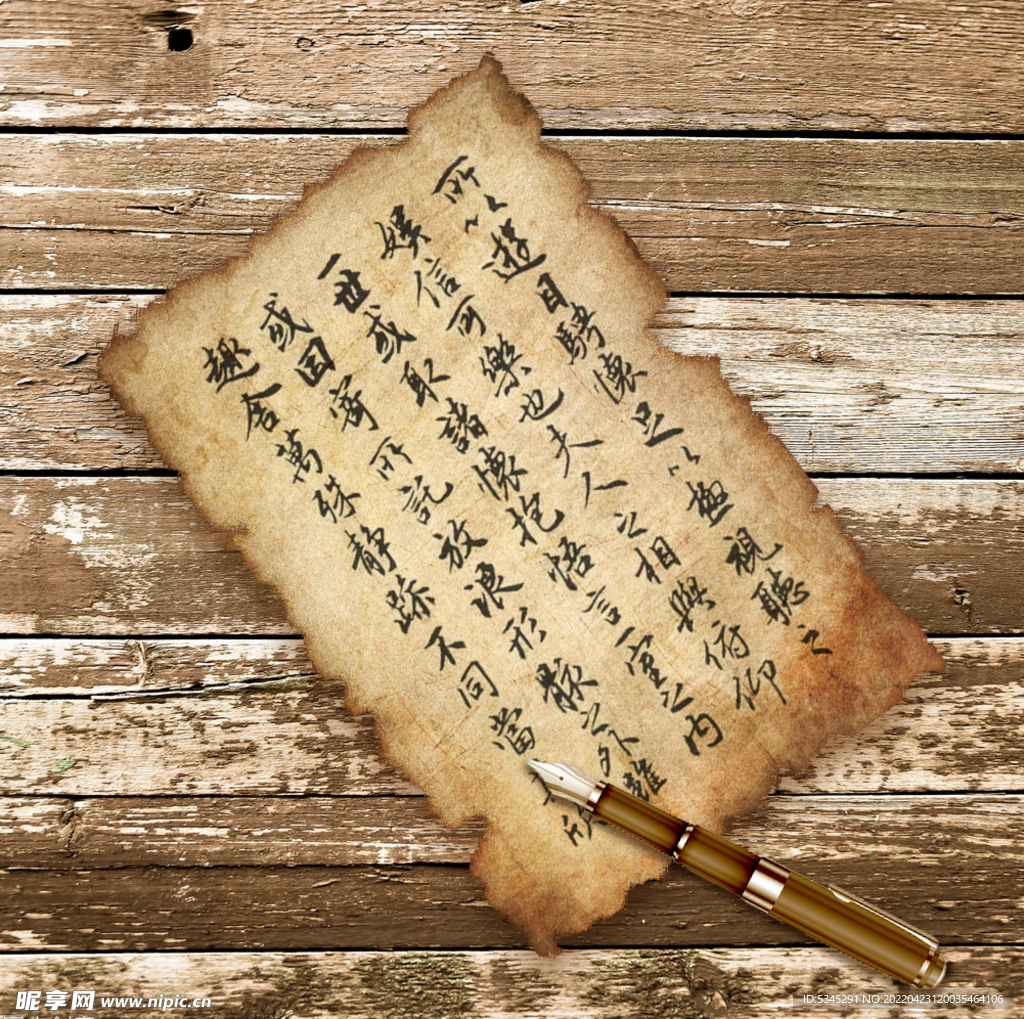 所以遊目騁懷足以極視聽之
娛信可樂也夫人之相與俯仰
一世或取諸懷抱悟言一室之內
或因寄所託放浪形骸之外雖
趣舍萬殊靜躁不同當欣
昵享网 www.nipic.cn
ID:5345291 NO.20220423120035464106